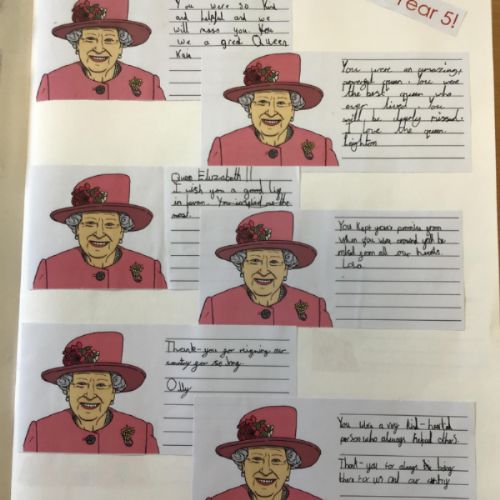 Year 5!
You were so kind
and helpful and we
will miss you. You
were a great Queen
You were an amazing,
queen. You were
the best queen who
ever lived. You
will be dearly missed.
I love the queen.
Leighton
Queen Elizabeth II
I wish you a good
in heaven. You inspired me the
most.
You kept your promise from
when you were around you'll be
missed from all our hearts.
Lola
Thank-you for reigning our
country for so long.
Olly
You were a very kind-hearted
person who always helped others.
Thank-you for always being
there for us and our country